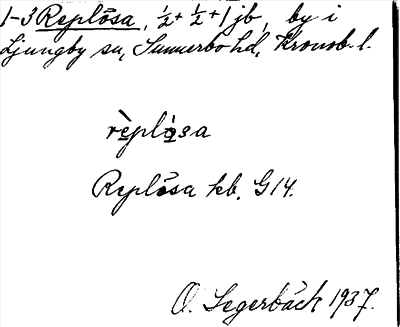 1-3 Replösa, ½ + ½ + 1 jb, by i
Ljungby sn, Sunnerbo hd, Kronob. l.
rèpl sa
Replösa hb. G14.
O. Segerbäck 1937.